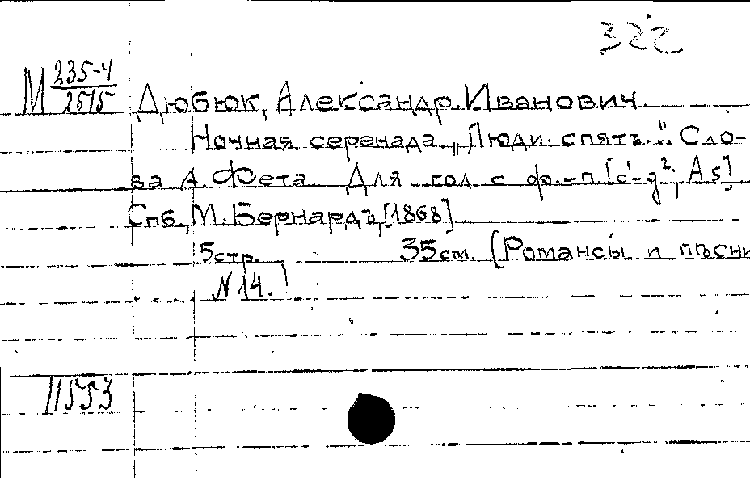 322
М 235-4/2515 Дюбюк, Александр Иванович.
Ночная серенада „Люди спятъ". Сло-
ва А. Фета. Для гол. с ф.-п. [c¹-g²; As]
Спб., М. Бернардъ, [1868]
5стр. 35см. (Романсы и пѣсни
N 14.)
11553